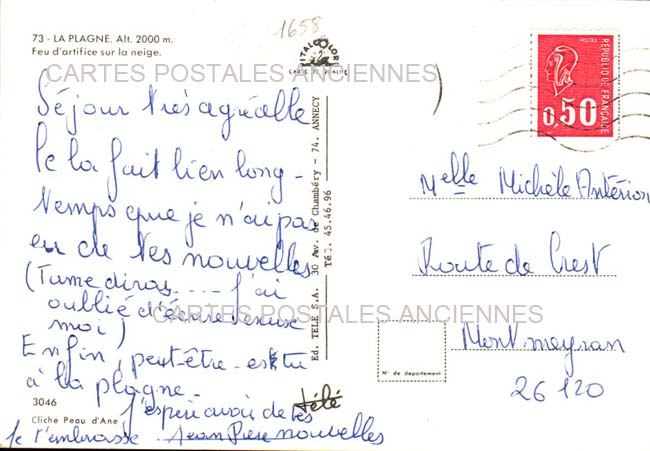 1658
73 - LA PLAGNE. Alt. 2000 m.
Feu d'artifice sur la neige.
ITALCOLOR
CARTE DE QUALITÉ
CARTES POSTALES ANCIENNES
POSTES
REPUBLIQUE DE FRANÇAISE
0,50
Séjour très agréable
la fait bien long-
temps que je n'ai pas
eu de tes nouvelles
(Tu me diras ---- j'ai
oublié d'écrire
moi)
Enfin, peut-être es-tu
à la plagne -
J'espère avoir de tes
nouvelles
Je t'embrasse Jean Pierre
Ed. TELE S.A. 30 Av. de Chambéry - 74. ANNECY
Tél. 45.46.96
télé
3046
Cliché Peau d'Ane
Melle Michèle Antérion
Route de Crest
CARTES POSTALES ANCIENNES
Montmeyran
26120
N° de département